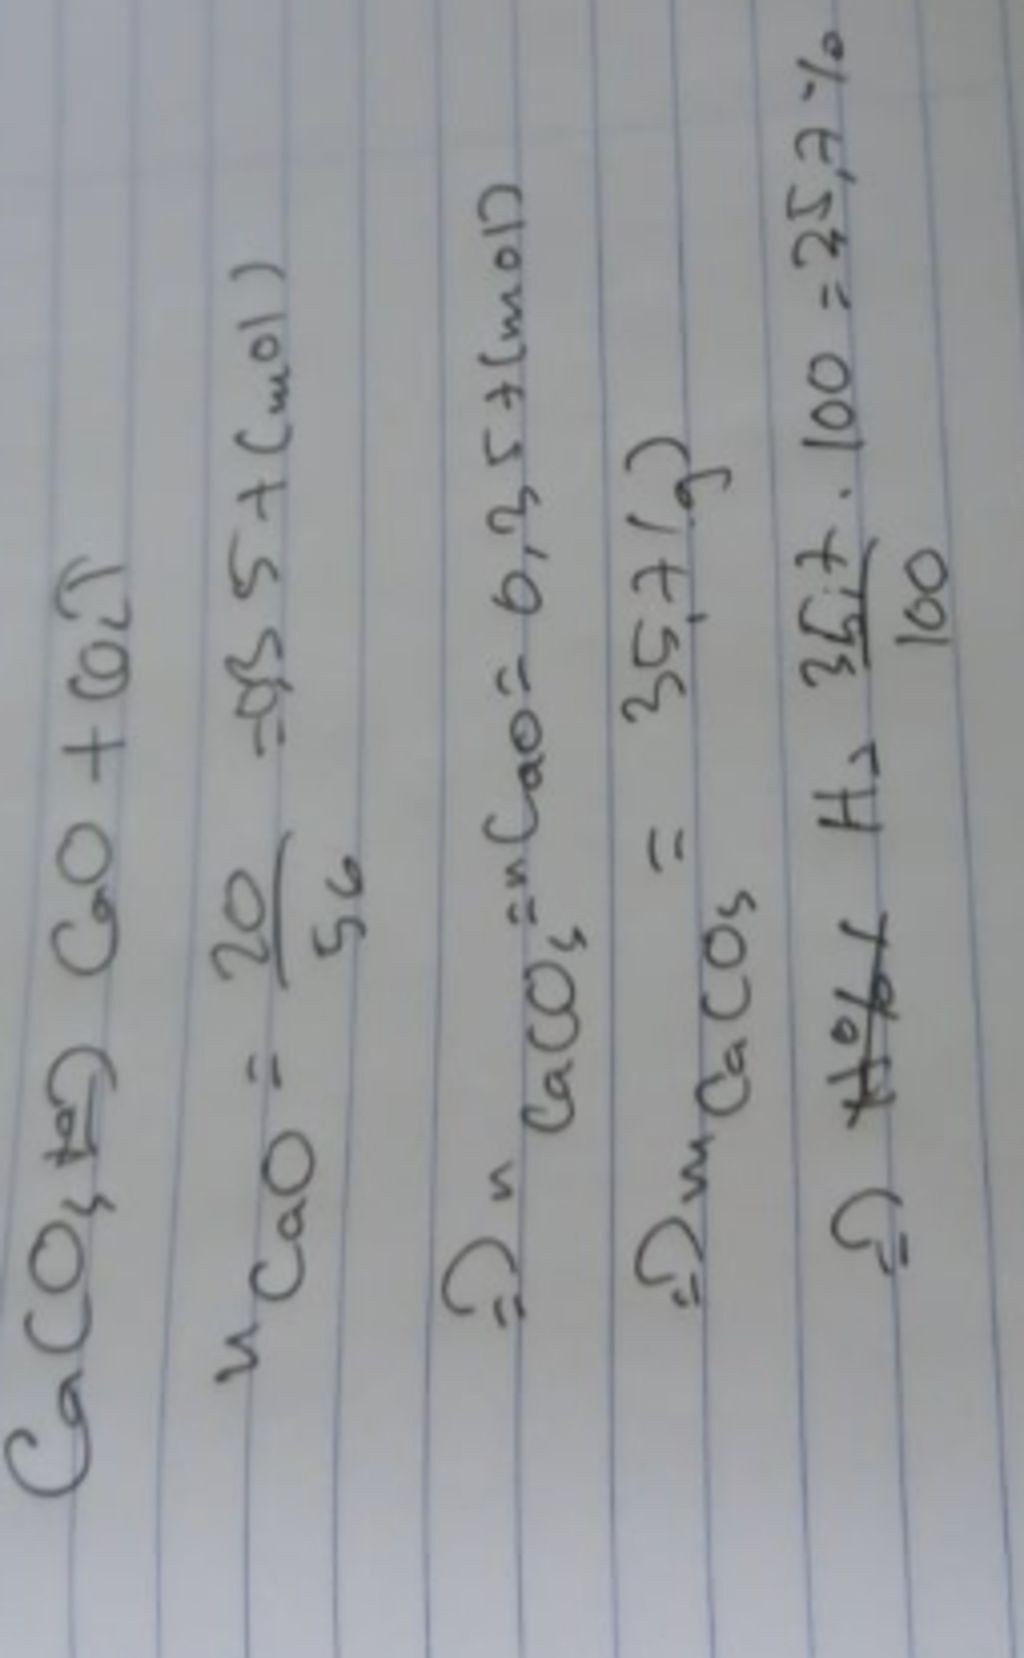 CaCO3 CaO + CO2↑
nCaO = 20/56 = 0,357 (mol)
=> nCaCO3 = nCaO = 0,357 (mol)
=> mCaCO3 = 35,7 (g)
=> H = 35,7/100 . 100 = 35,7%